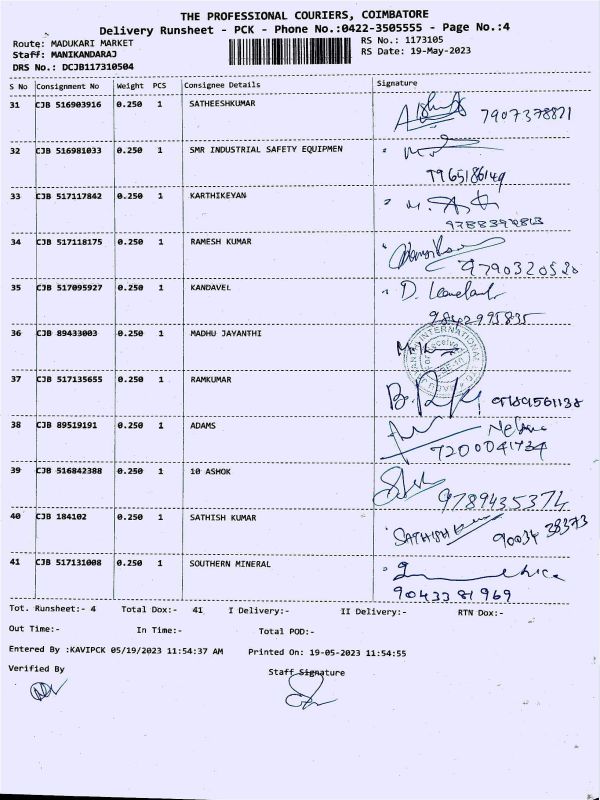 THE PROFESSIONAL COURIERS, COIMBATORE
Delivery Runsheet - PCK - Phone No.:0422-3505555 - Page No.:4
Route: MADUKARI MARKET
RS No.: 1173105
Staff: MANIKANDARAJ
RS Date: 19-May-2023
DRS No.: DCJB117310504
S No Consignment No Weight PCS Consignee Details Signature
31 CJB 516903916 0.250 1 SATHEESHKUMAR
7907378821
32 CJB 516981033 0.250 1 SMR INDUSTRIAL SAFETY EQUIPMEN
33 CJB 517117842 0.250 1 KARTHIKEYAN
34 CJB 517118175 0.250 1 RAMESH KUMAR
9790320520
35 CJB 517095927 0.250 1 KANDAVEL
D.
9842995835
36 CJB 89433003 0.250 1 MADHU JAYANTHI
INTERNATIONAL
37 CJB 517135655 0.250 1 RAMKUMAR
38 CJB 89519191 0.250 1 ADAMS
7200041734
39 CJB 516842388 0.250 1 10 ASHOK
9789435374
40 CJB 184102 0.250 1 SATHISH KUMAR
SATHISH
90034 38373
41 CJB 517131008 0.250 1 SOUTHERN MINERAL
9043381969
Tot. Runsheet:- 4 Total Dox:- 41 I Delivery:- II Delivery:- RTN Dox:-
Out Time:- In Time:- Total POD:-
Entered By :KAVIPCK 05/19/2023 11:54:37 AM Printed On: 19-05-2023 11:54:55
Verified By Staff Signature